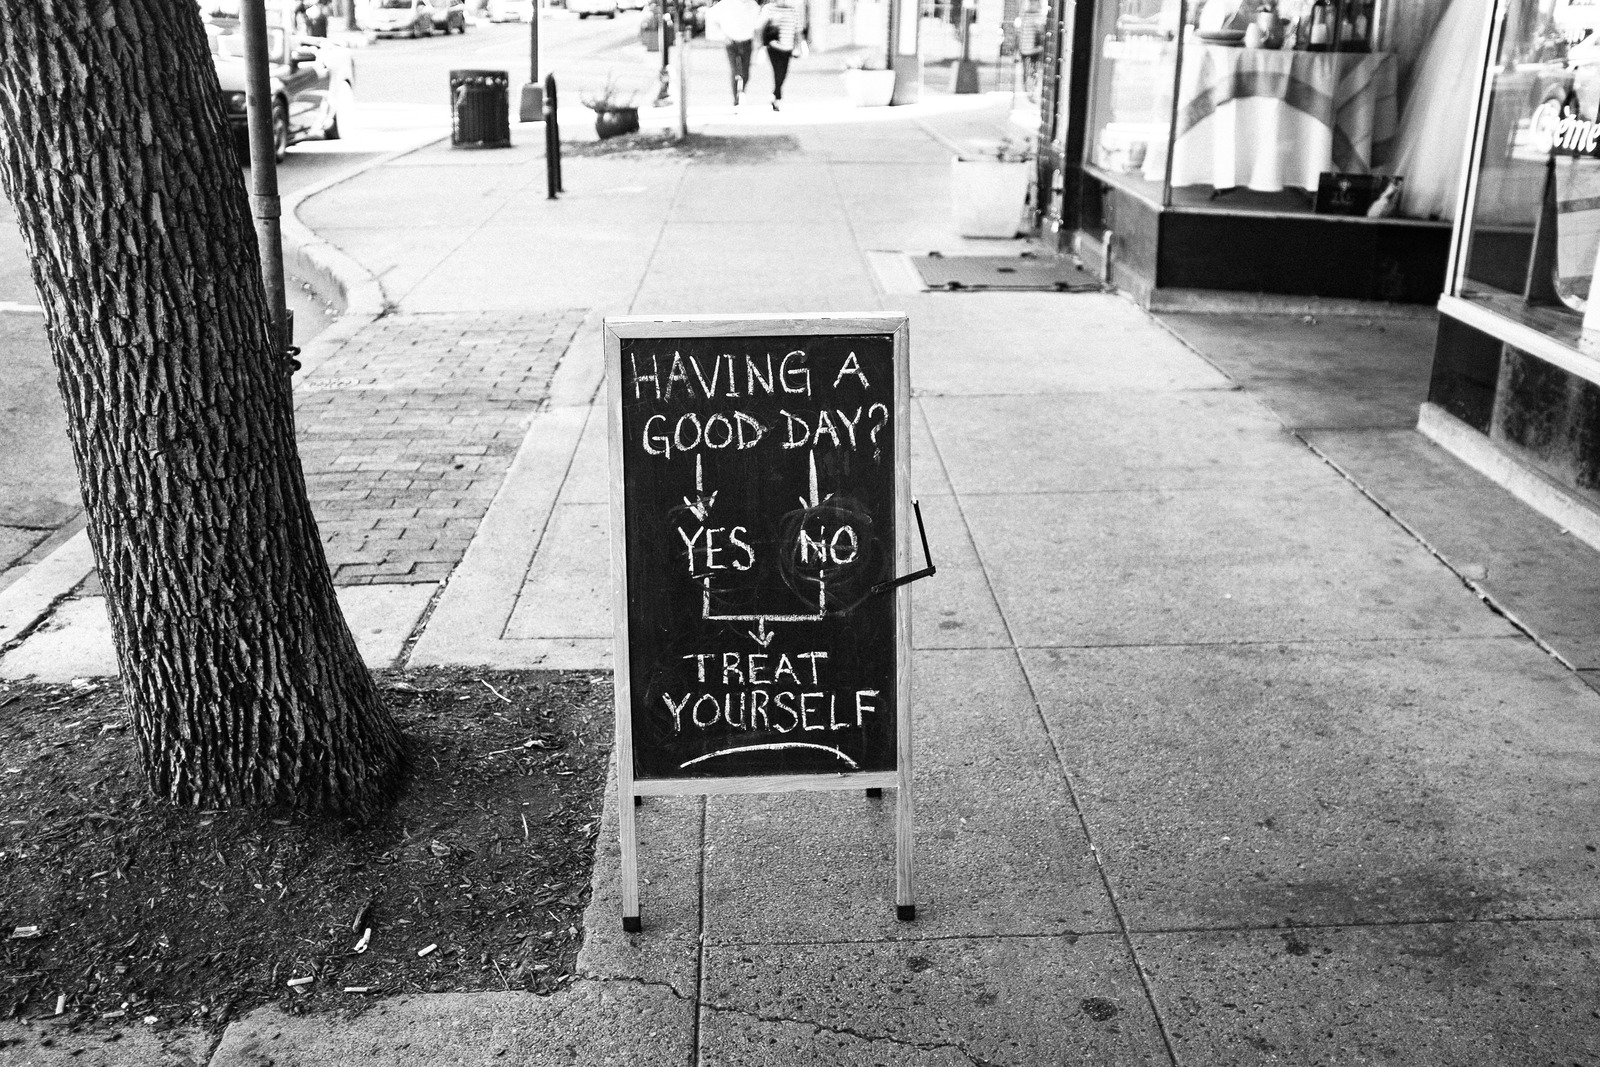 HAVING A
GOOD DAY?
YES NO
TREAT
YOURSELF
Crème